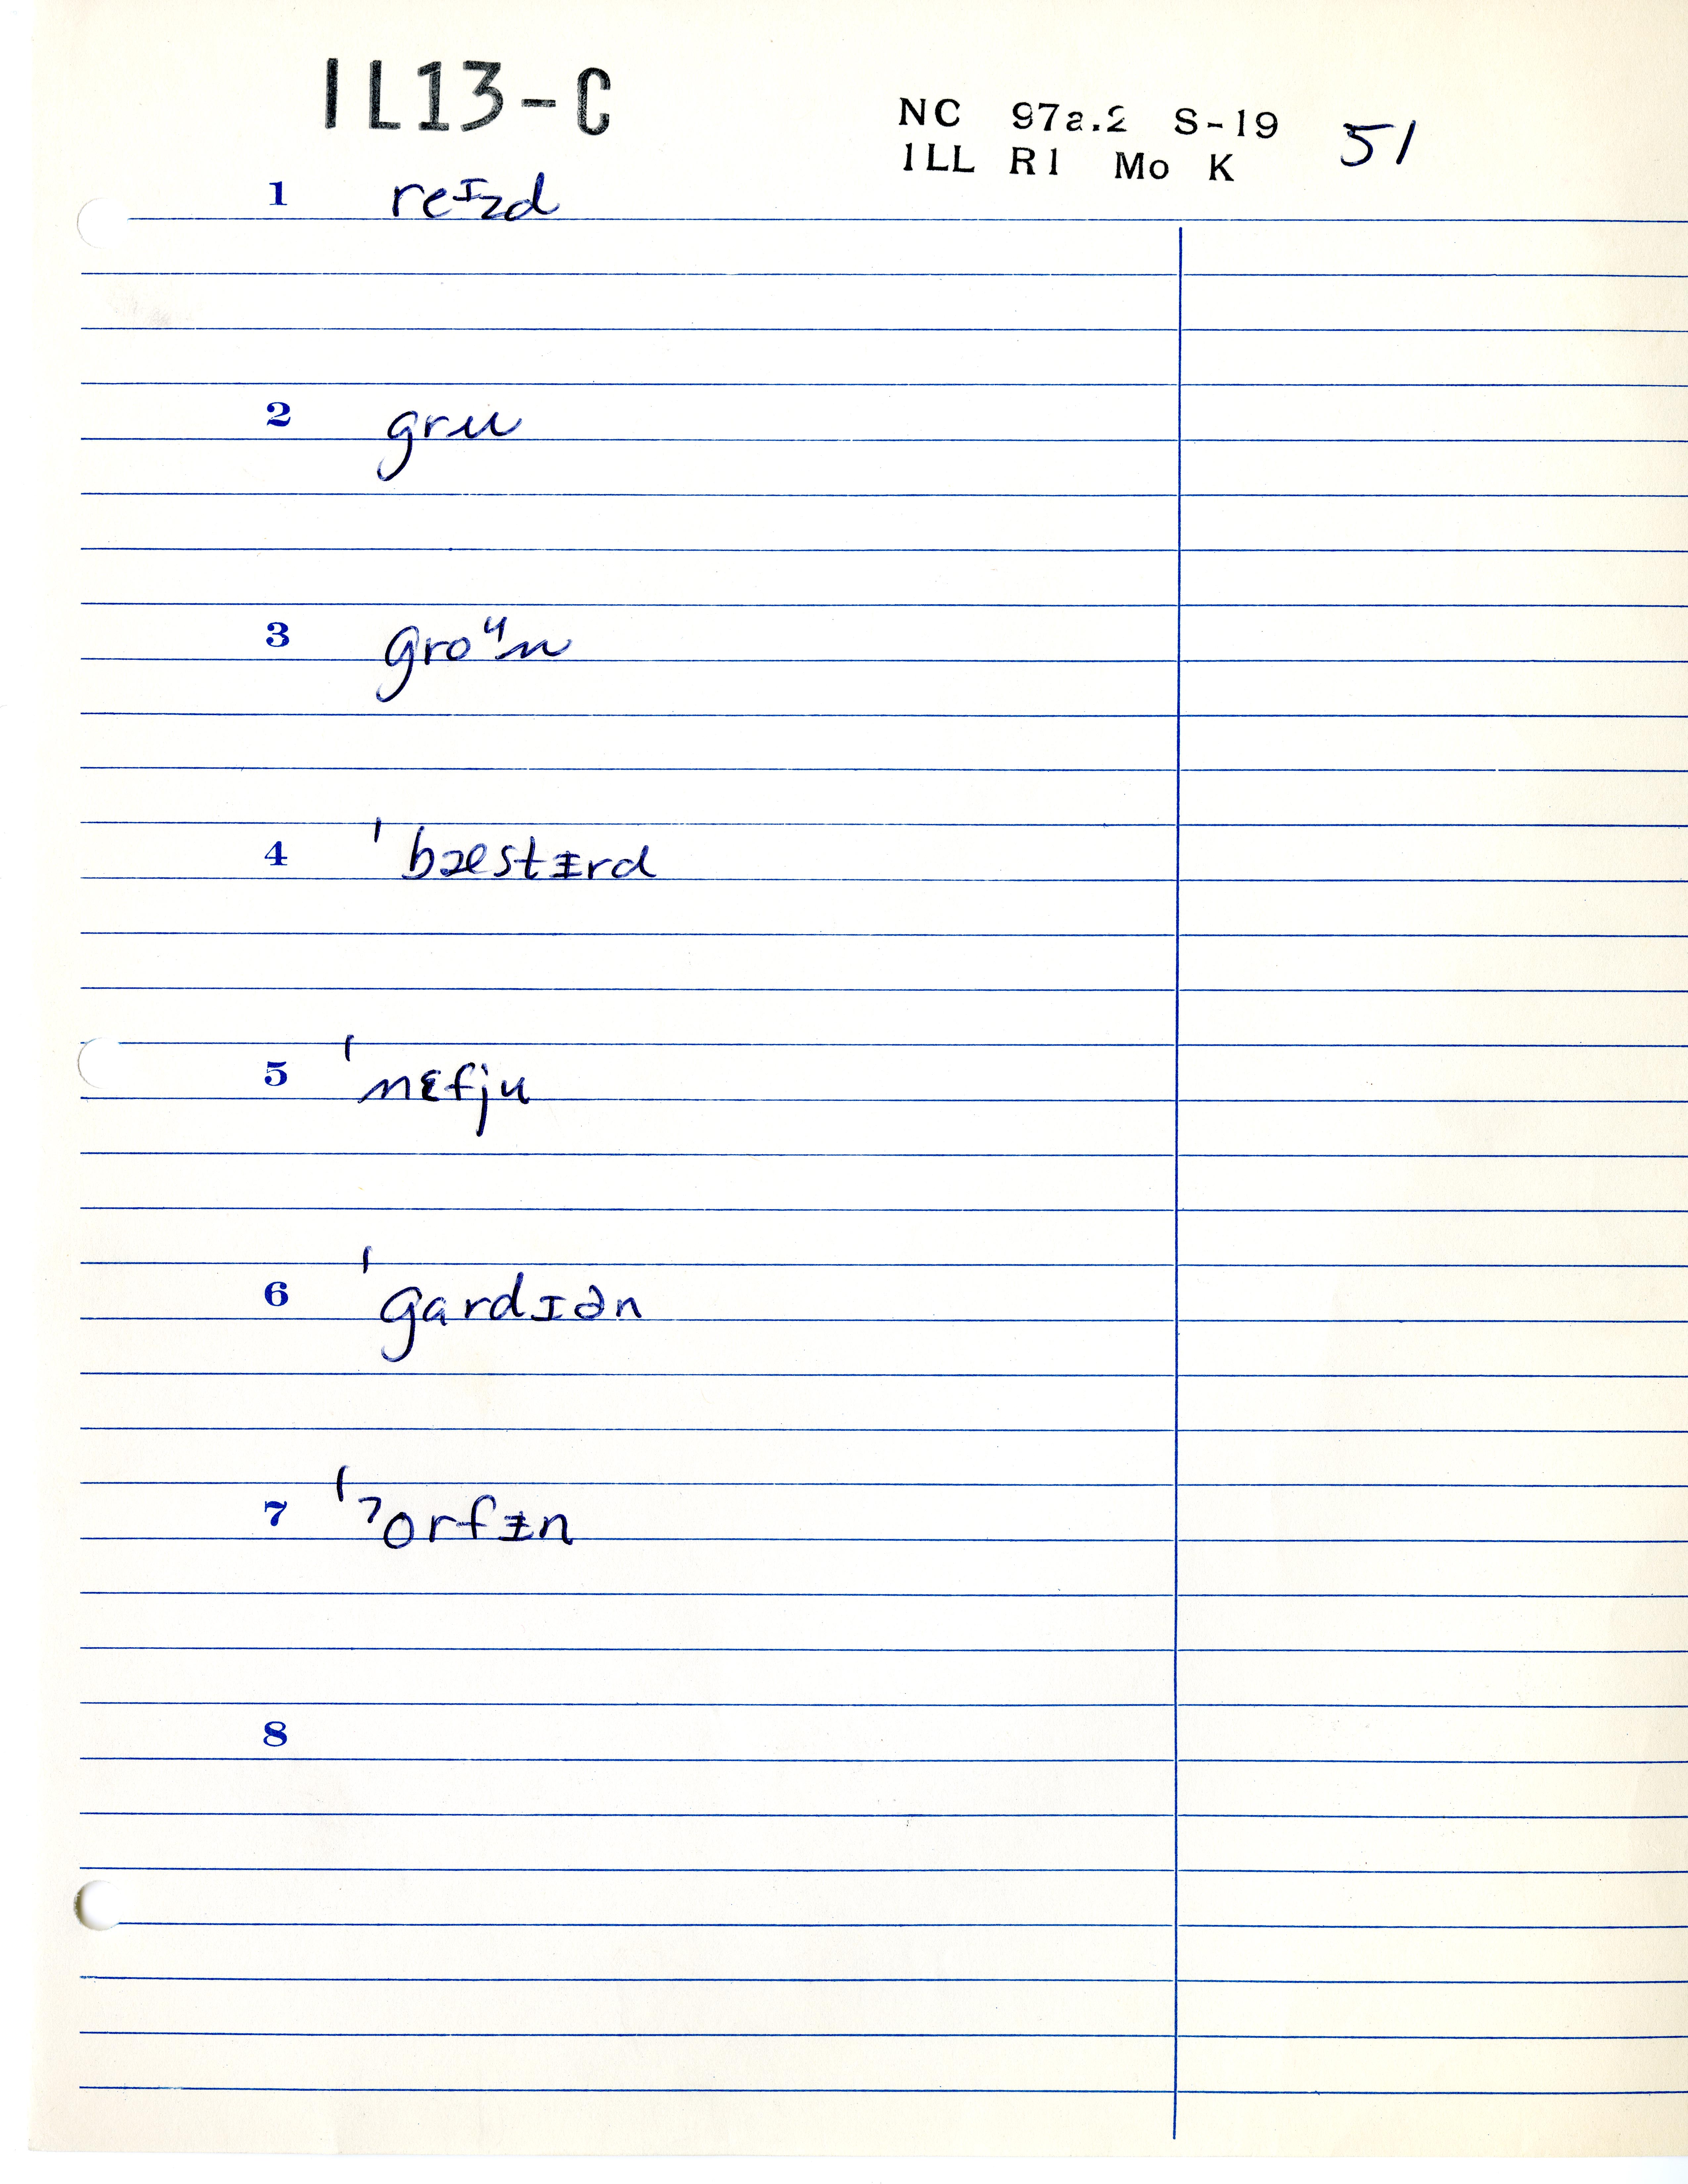 IL13-C
NC 97a.2 S-19 51
ILL R1 Mo K
1 reɪzd
2 gru
3 groᶶn
4 ˈbæstɨrd
5 ˈnɛfju
6 ˈgardɪən
7 ˈˀorfɨn
8